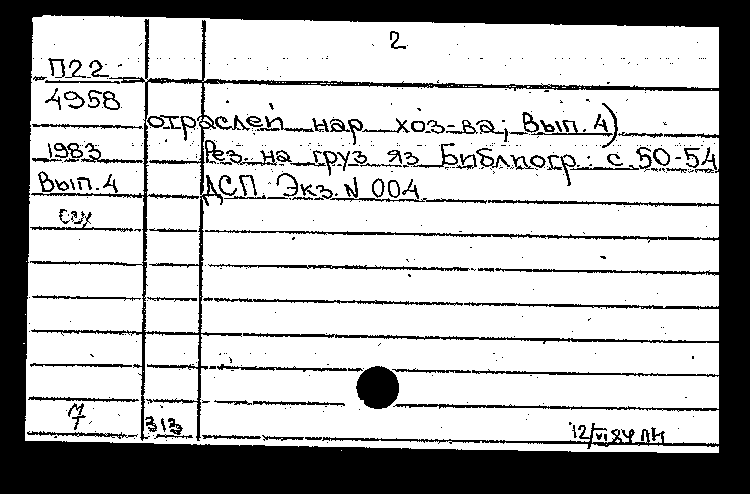 2
П22
4958
отраслей нар хоз-ва; Вып. 4)
1983 Рез. на груз яз Библиогр.: с. 50-54
Вып. 4 ДСП. Экз. N 004
313
12/VI 84